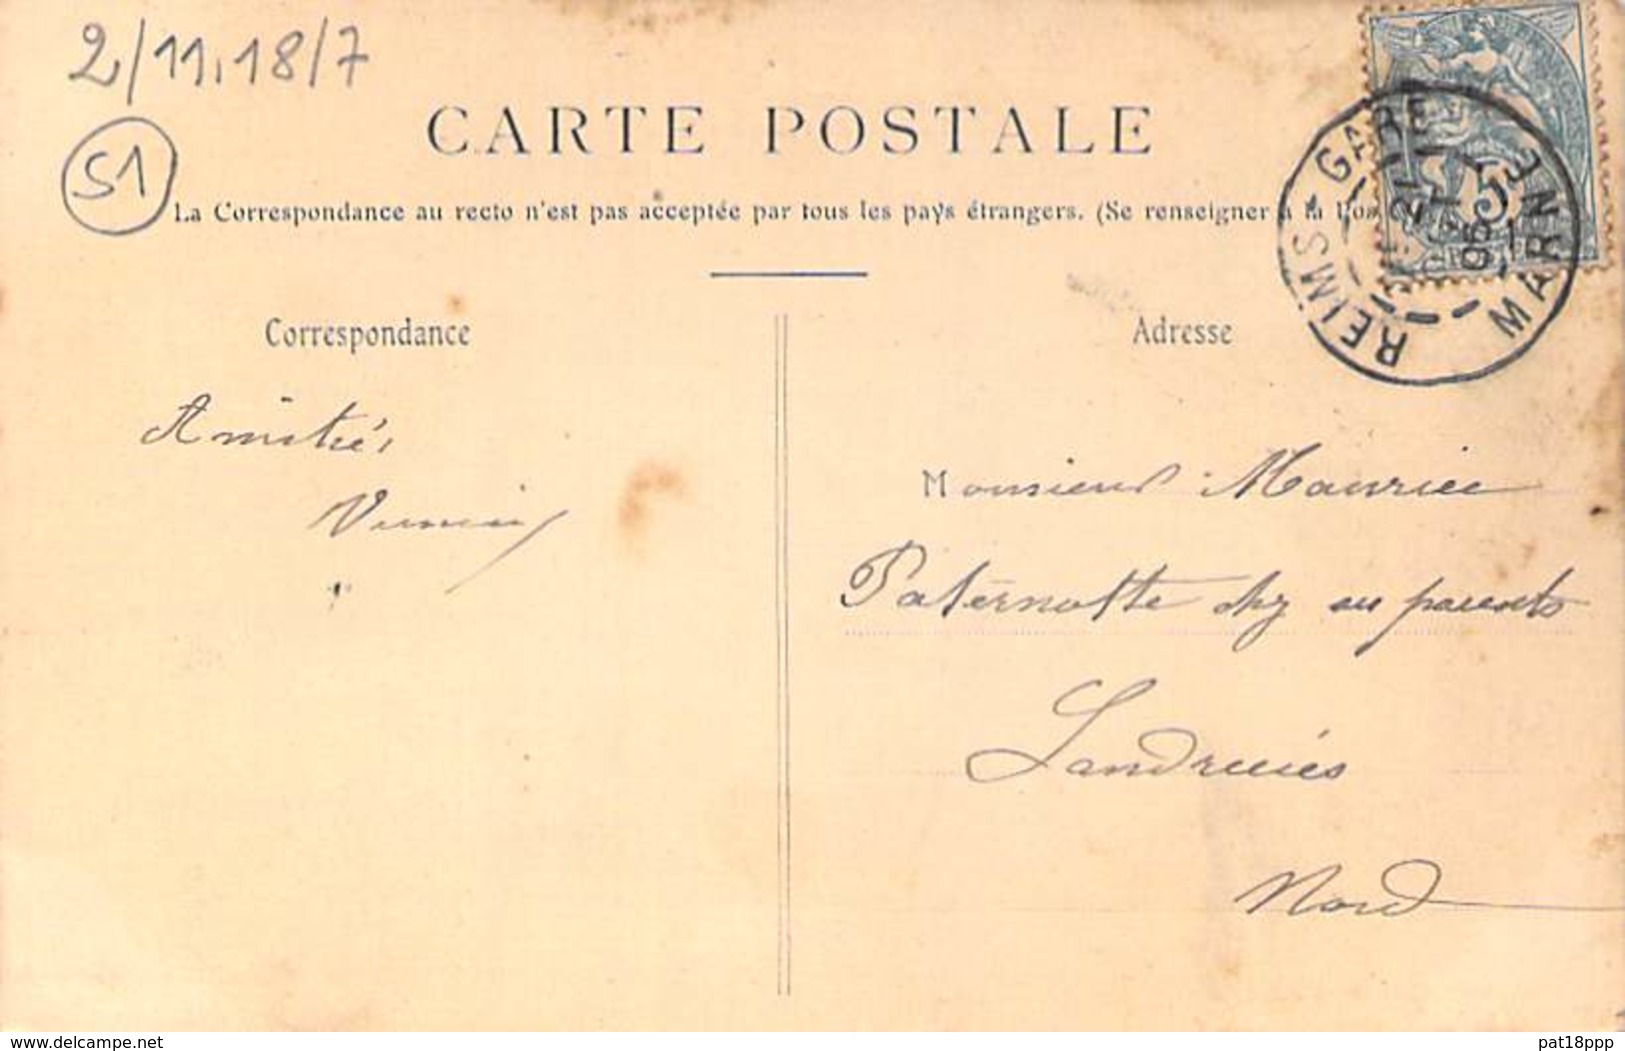 2/11.18/7
51
CARTE POSTALE
La Correspondance au recto n'est pas acceptée par tous les pays étrangers. (Se renseigner à la
REIMS - GARE
MARNE
5
Correspondance
Adresse
Amitiés
Monsieur Maurice
Paternotte chez ses parents
Landrecies
Nord
delcampe.net
pat18ppp